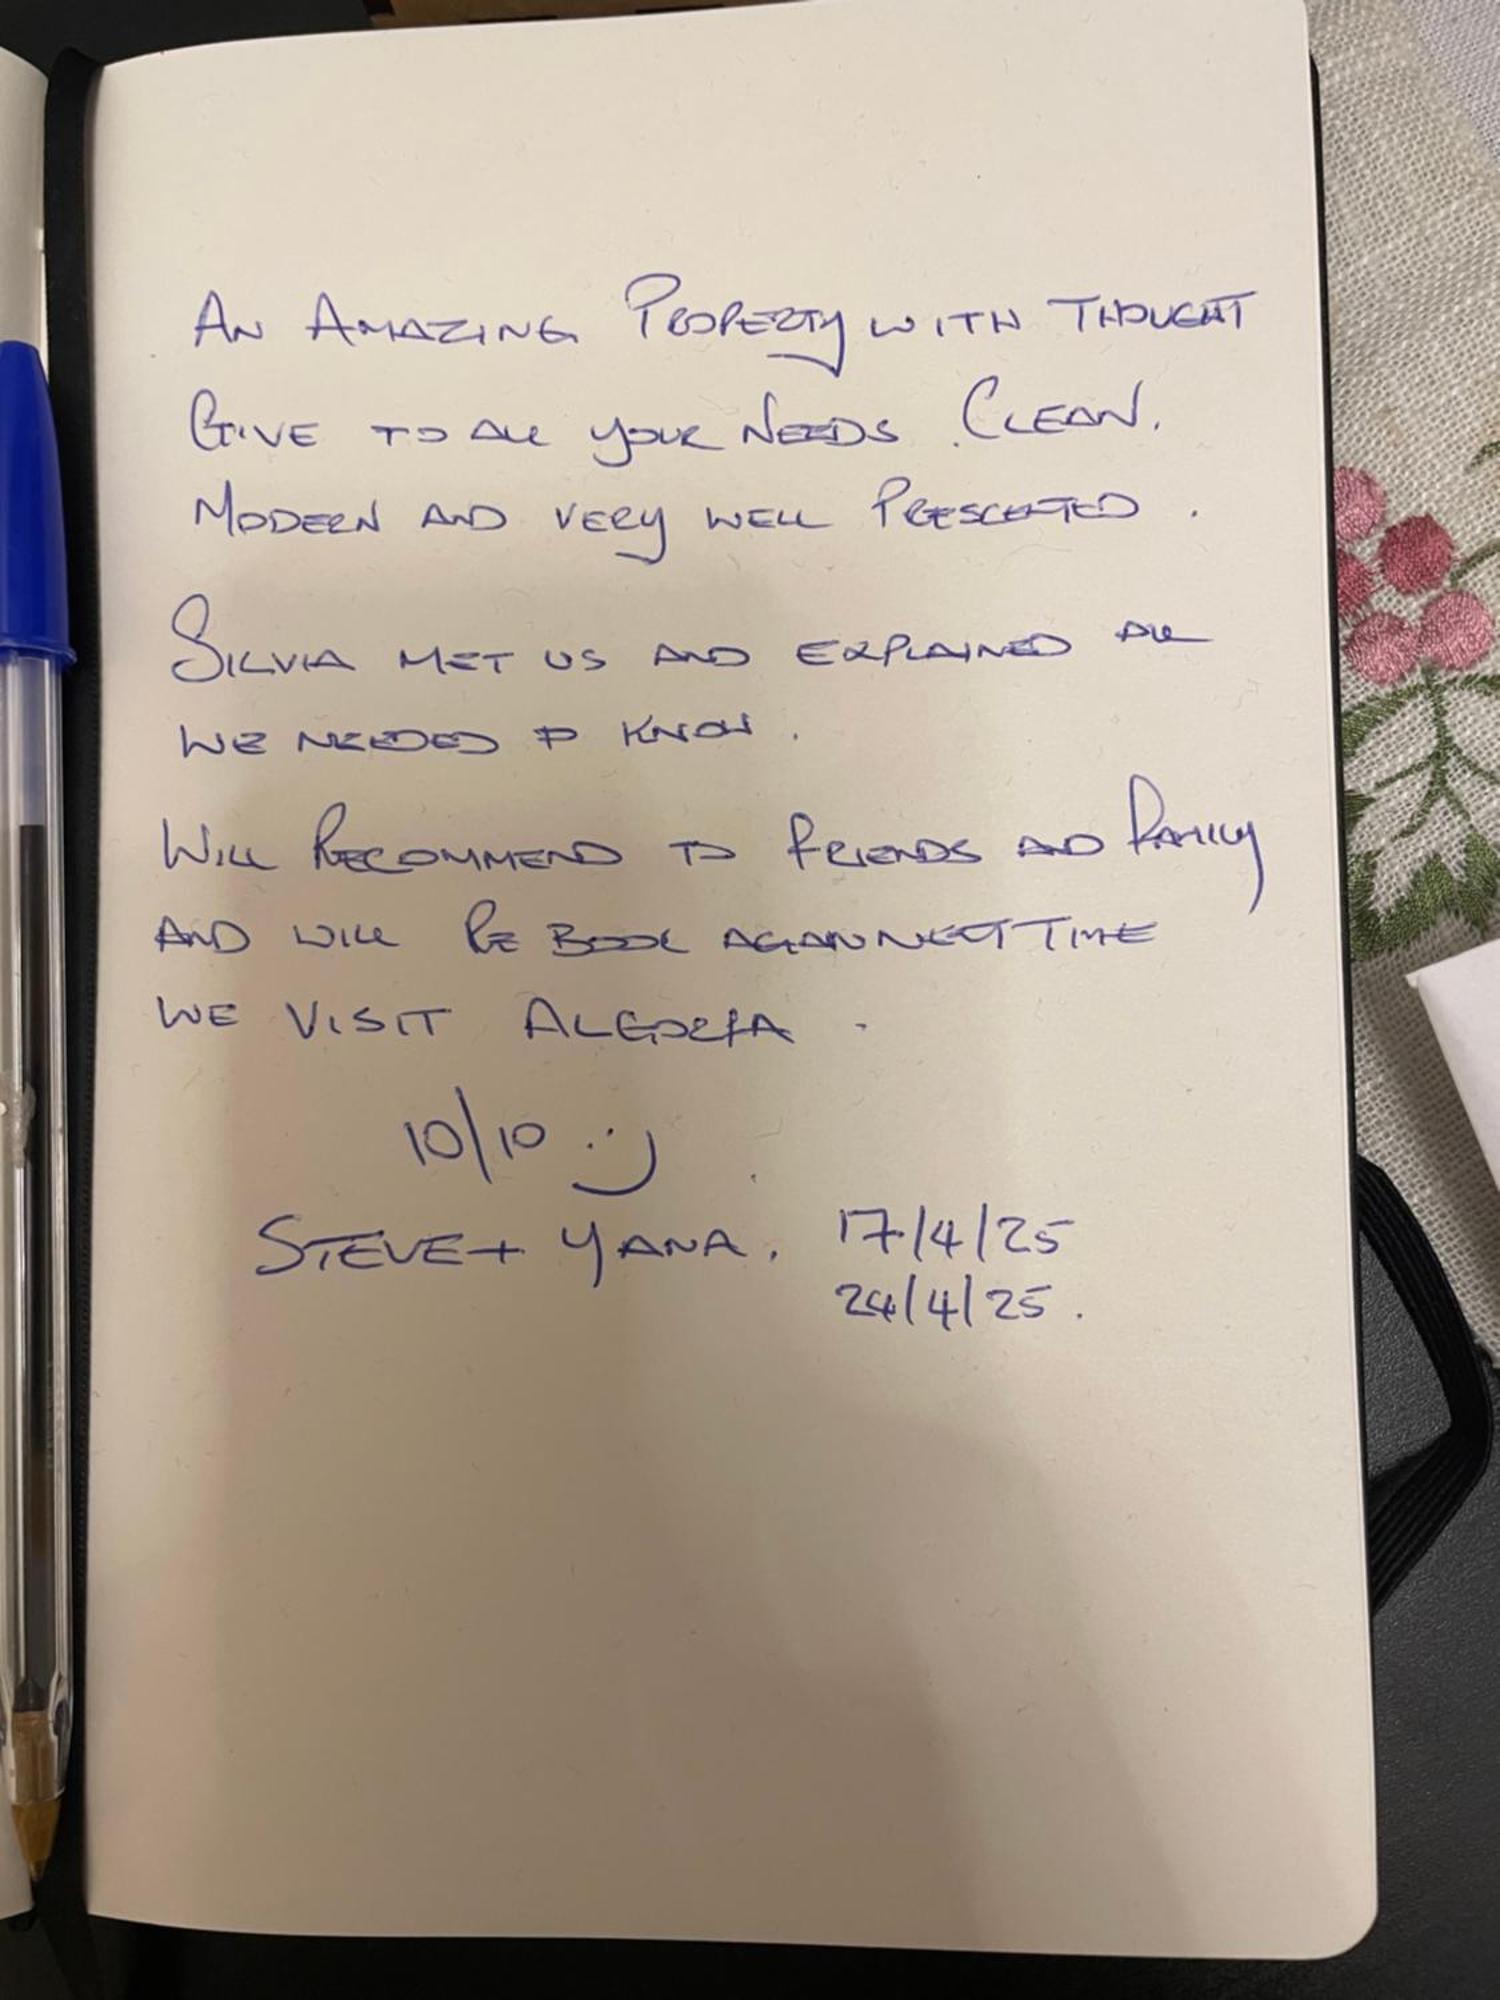 An Amazing Property with thought
Give to all your needs. Clean.
Modern and very well Presented.
Silvia met us and explained all
we needed to know.
Will Recommend to friends and family
and will Re book again next time
we visit Algorfa.
10/10 :)
Steve + Yana. 17/4/25
24/4/25.